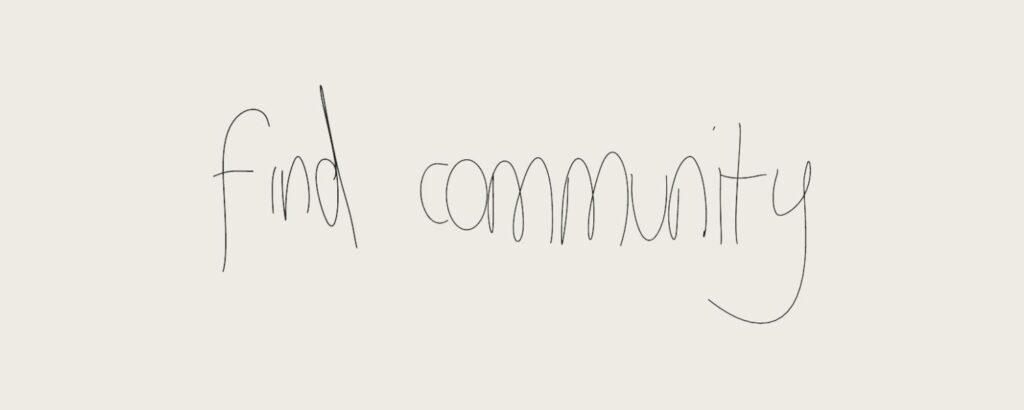 find community